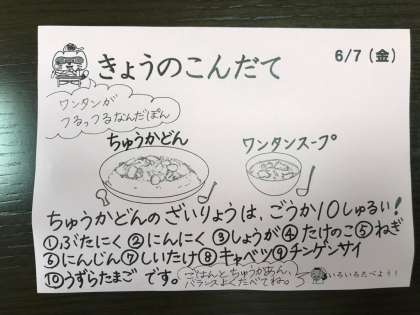 きょうのこんだて
6/7(金)
ワンタンが
つるっつるなんだぽん
ちゅうかどん
ワンタンスープ
ちゅうかどんのざいりょうは、ごうか10しゅるい!
①ぶたにく ②にんにく ③しょうが ④たけのこ ⑤ねぎ
⑥にんじん ⑦しいたけ ⑧キャベツ ⑨チンゲンサイ
⑩うずらたまご です。
ごはんとちゅうかあん、
バランスよくたべてね。
いろいろたべよう!